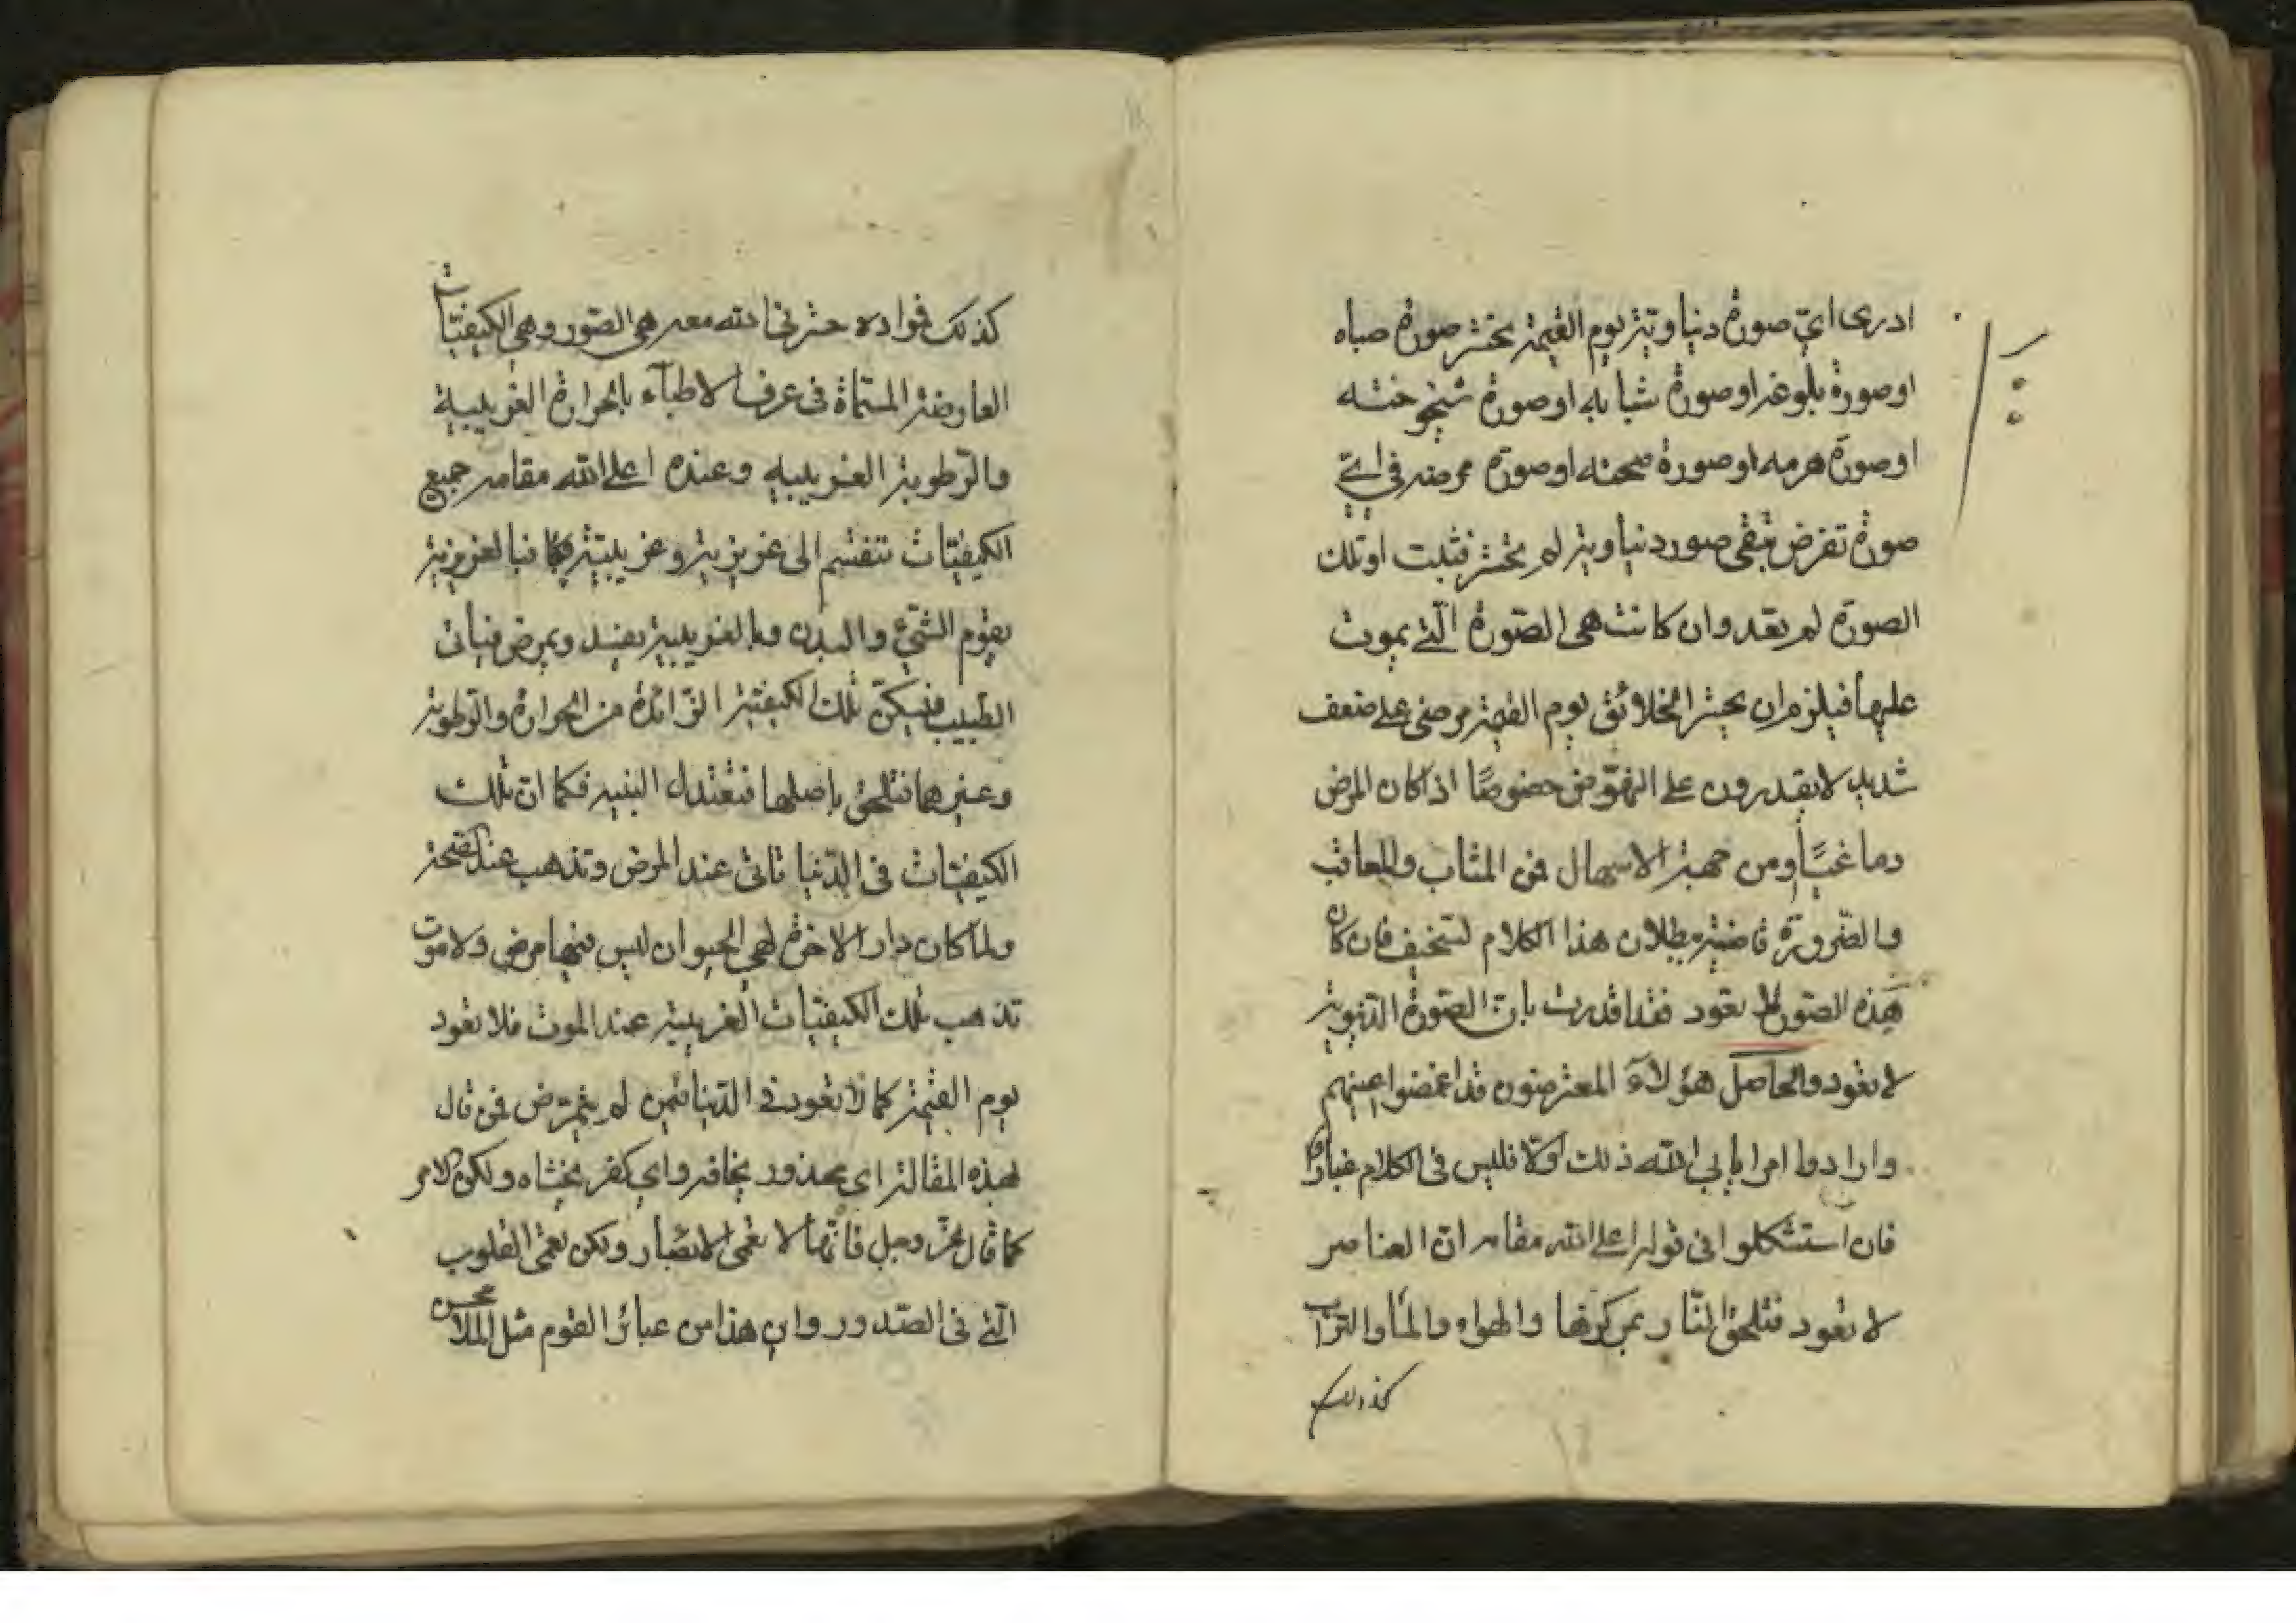 ادرى اىّ صورة دنياويّة يوم القيمة يحشر صورة صباه
او صورة بلوغه او صورة شبابه او صورة شيخوخته
او صورة هرمه او صورة صحته او صورة مرضه فى اىّ
صورة تفرض تبقى صور دنياوية لم يحشر فثبت ان تلك
الصورة لم يعد وان كانت هى الصّورة الّتى يموت
عليها فيلزم ان يحشر الخلايق يوم القيمة مرضى على ضعف
شديد لا يقدرون على النهوض خصوصًا اذا كان المرض
دماغيًّا ومن جهة الاسهال فمن المثاب والمعاقب
والضّرورة قاضية ببطلان هذا الكلام السخيف فان كان
هذه الصّور لا يعود فقد اقررت بان الصّورة الدّنيوية
لا يعود والحاصل هؤلآء المعترضون قد اغمضوا اعينهم
وارادوا امرا يابى الله ذلك والّا فليس فى الكلام غبار
فان استشكلوا فى قوله اعلى الله مقامه ان العناصر
لا يعود فتلحق النّار بمركزها والهواء والمآء والتراب
كذلك
كذلك فمراده حشرنى الله معه هى الصّور وهى الكيفيّات
العارضة المسمّاة فى عرف الاطبآء بالحرارة الغريبية
والرّطوبة الغريبية وعنده اعلى الله مقامه جميع
الكيفيّات تنقسم الى غريزية وغريبيّة فكما ان بالغريزية
يقوم الشّىء والبدن وبالغريبية يفسد ويمرض فياتى
الطّبيب فيسكّن تلك الكيفيّة الزّائدة من الحرارة والرّطوبة
وغيرهما فتلحق باصلها فتعتدل البنية فكما ان تلك
الكيفيّات فى الدّنيا تاتى عند المرض وتذهب عند الصّحة
ولمّا كان دار الاخرة لهى الحيوان ليس فيها مرض ولا موت
تذهب تلك الكيفيّات الغريبية عند الموت فلا يعود
يوم القيمة كما لا يعود فى الدّنيا فيمن لم يتمرّض فمن قال
بهذه المقالة اى محذور يخافه واى كفر يخشاه ولكن الامر
كما قال عزّ وجل فانّها لا تعمى الابصار ولكن تعمى القلوب
الّتى فى الصّدور واين هذا من عبائر القوم مثل الملّا محسن